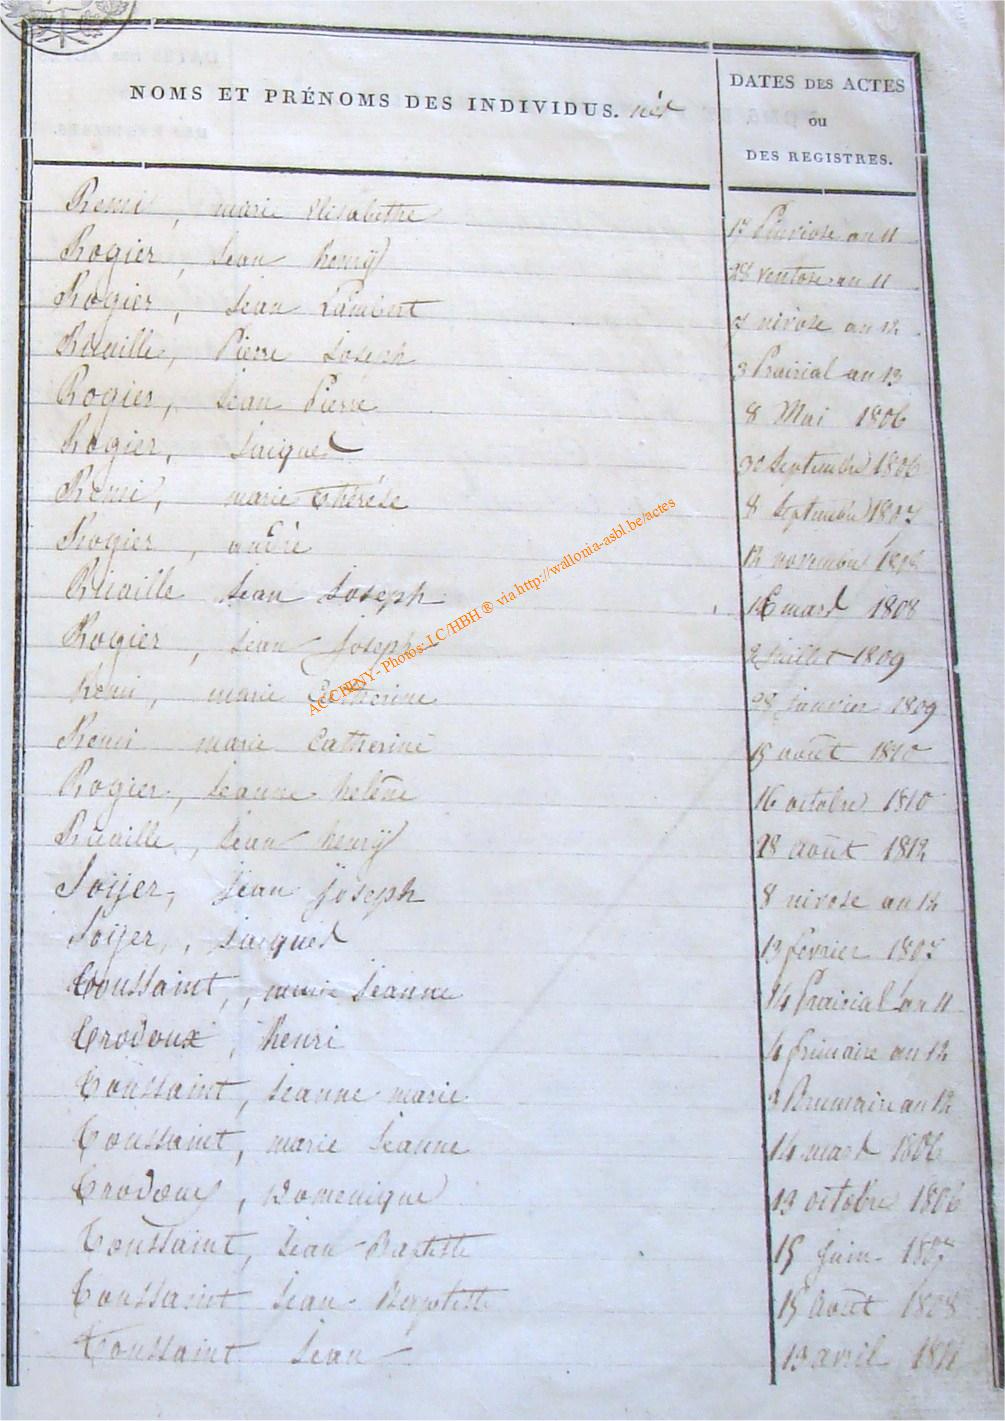 NOMS ET PRÉNOMS DES INDIVIDUS. nés
DATES DES ACTES
ou
DES REGISTRES.
Remi, marie Elisabethe 17 Pluviose an 11
Rogier, Jean henrÿ 28 ventose an 11
Rogier, Jean Lambert nivose an 12
Ruaille, Pierre Joseph 3 Prairial an 13
Rogier, Jean Pierre 8 Mai 1806
Rogier, Jacques 30 Septembre 1806
Remi, marie thérése 8 Septembre 1807
Rogier, andré 12 novembre 1808
Ruaille Jean Joseph 16 mars 1808
Rogier, Jean joseph 2 juillet 1809
Remi, marie Catherine 28 janvier 1809
Remi marie Catherine 15 août 1810
Rogier, Jeanne heléne 16 octobre 1810
Ruaille, Jean henrÿ 28 août 1812
Soijer, Jean joseph 8 nivose an 12
Soijer, Jacques 13 fevrier 1807
Toussaint, marie Jeanne 14 Prairial an 11
Trodoux, henri 4 frimaire an 12
Toussaint, Jeanne marie Brumaire an 12
Toussaint, marie Jeanne 14 mars 1806
Trodoux, Domenique 13 octobre 1806
Toussaint, Jean Baptiste 15 juin 1807
Toussaint Jean Baptiste 15 août 1808
Toussaint Jean 13 avril
ACCHENY - Photos: LC/HBH ® via http://wallonia-asbl.be/actes